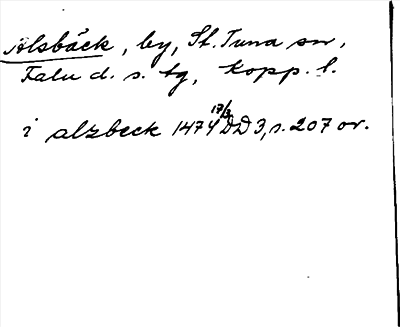 Alsbäck, by, St. Tuna sn,
Falu d. s. tg, Kopp. l.
i alzbeck 1474 17/3 DD 3, s. 207 or.